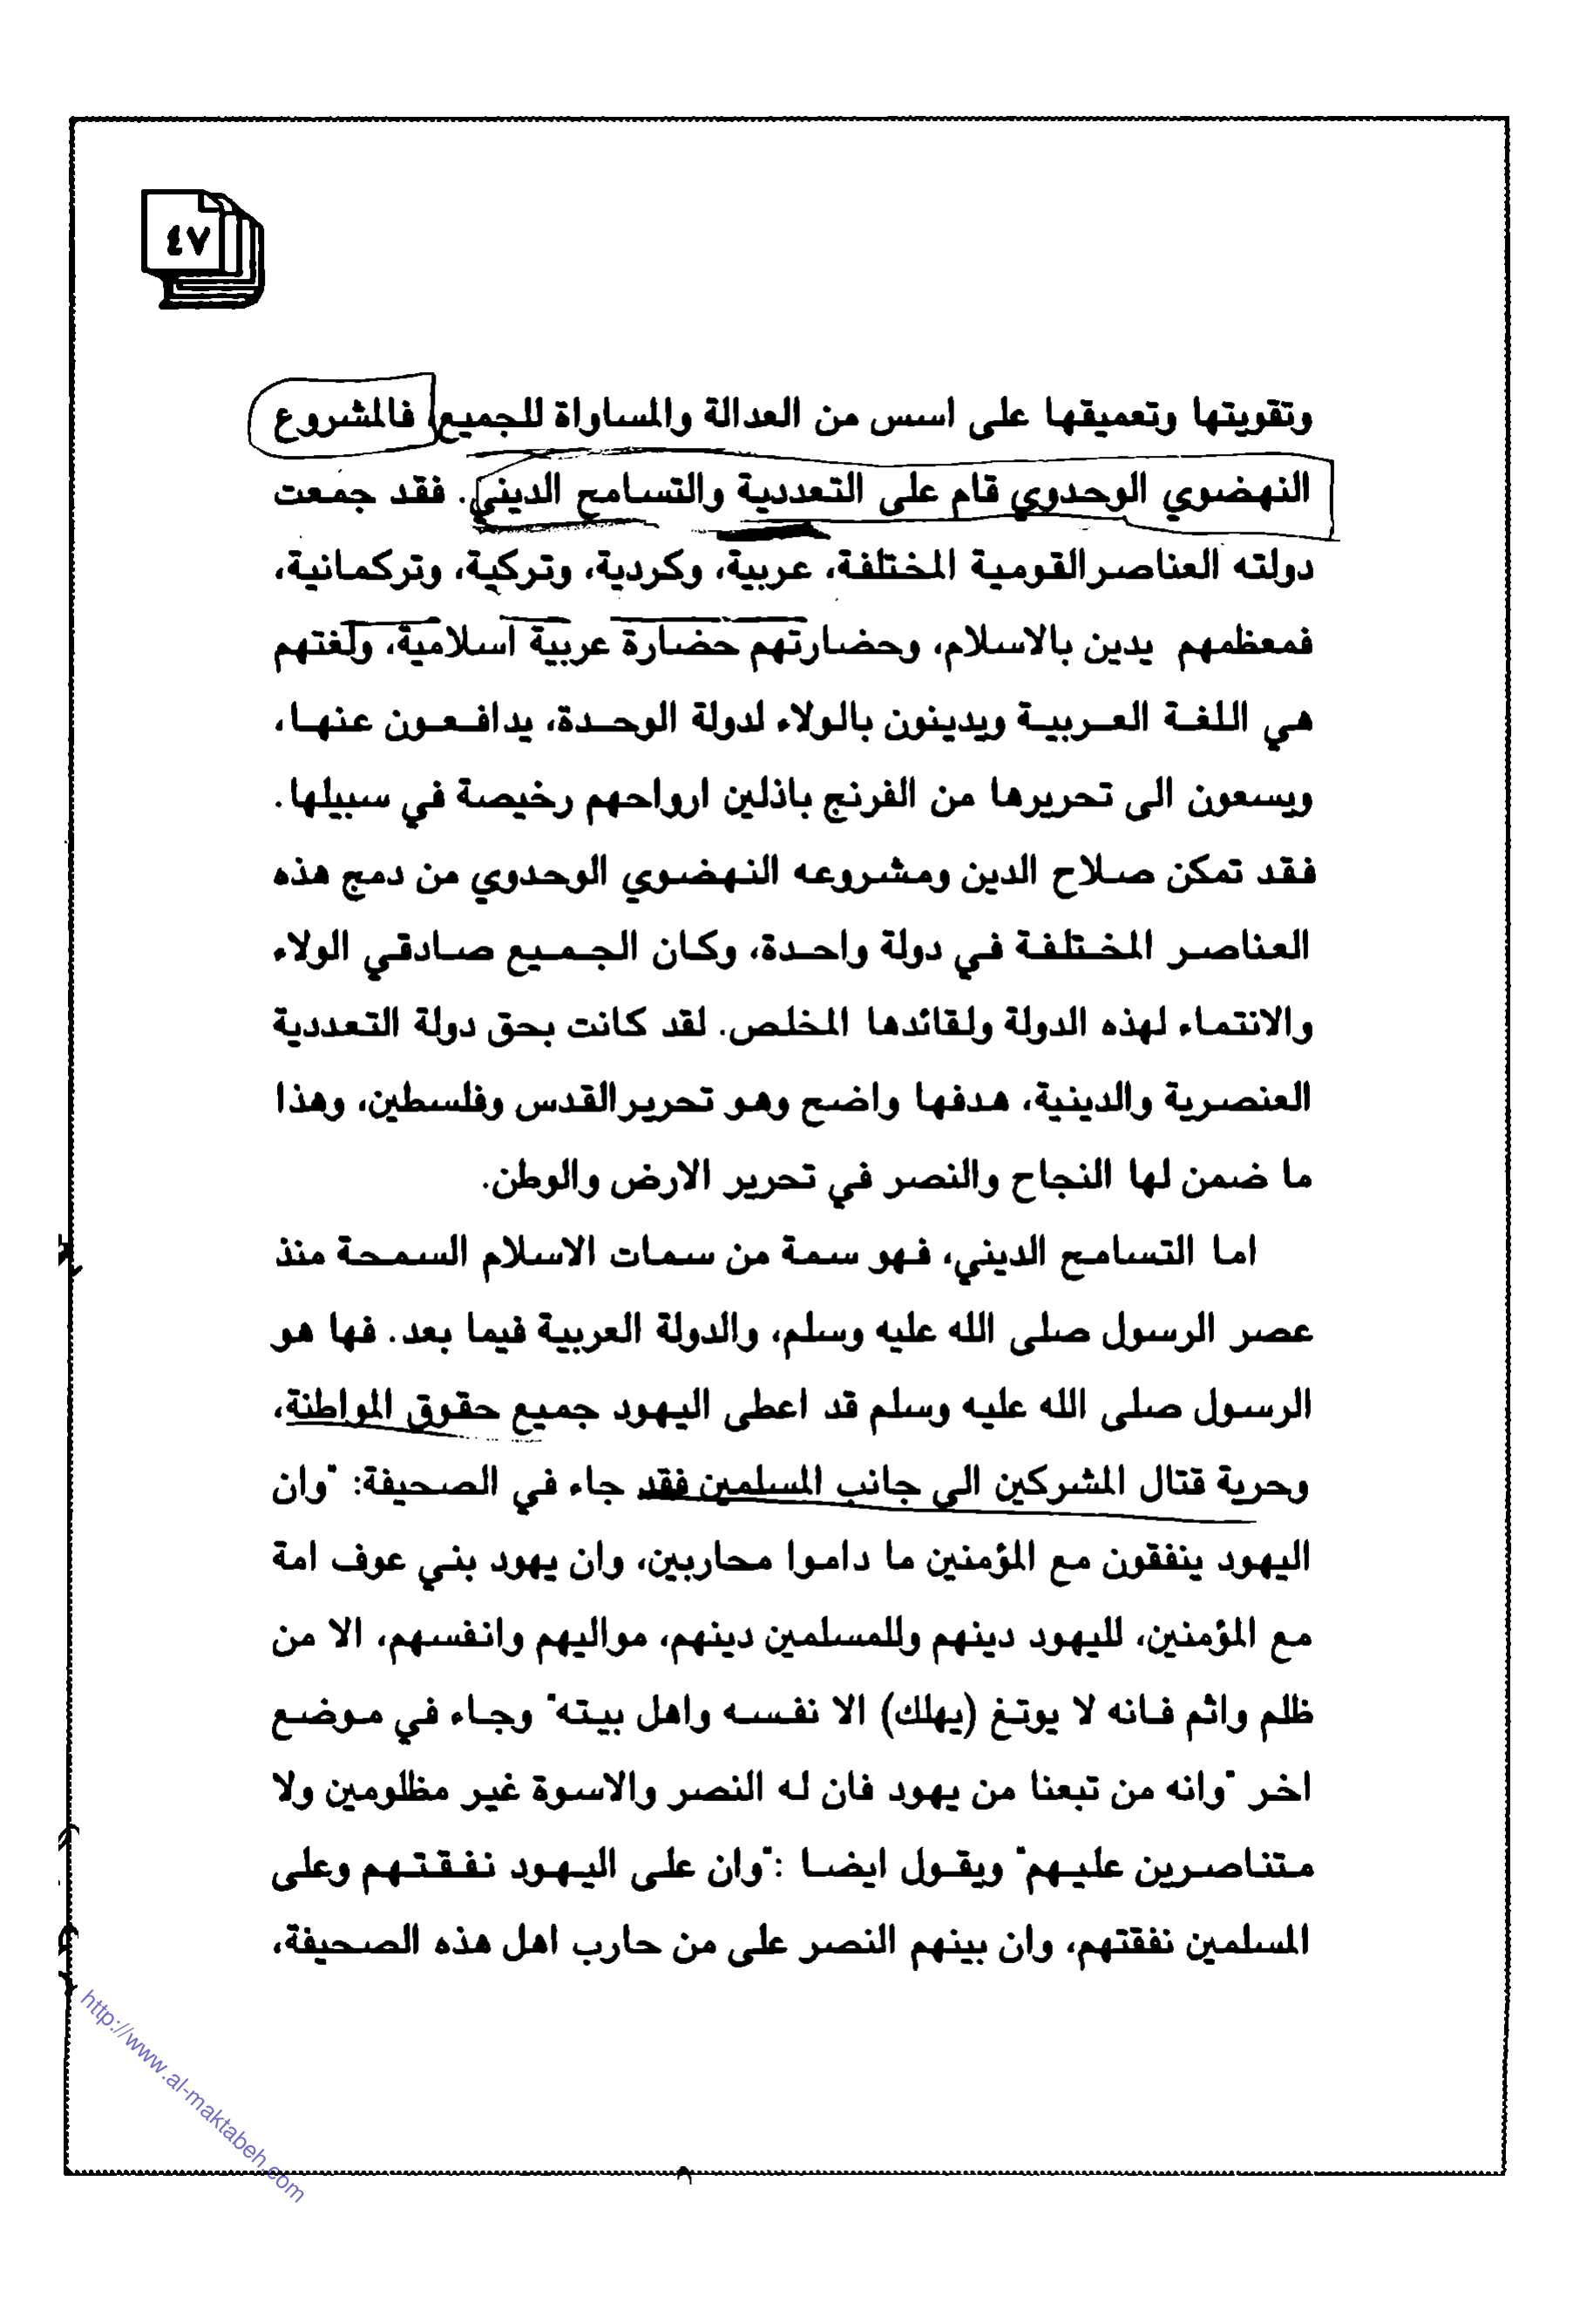 ٤٧
وتقويتها وتعميقها على اسس من العدالة والمساواة للجميع، فالمشروع
النهضوي الوحدوي قام على التعددية والتسامح الديني. فقد جمعت
دولته العناصر القومية المختلفة، عربية، وكردية، وتركية، وتركمانية،
فمعظمهم يدين بالاسلام، وحضارتهم حضارة عربية اسلامية، ولغتهم
هي اللغة العربية ويدينون بالولاء لدولة الوحدة، يدافعون عنها،
ويسعون الى تحريرها من الفرنج باذلين ارواحهم رخيصة في سبيلها.
فقد تمكن صلاح الدين ومشروعه النهضوي الوحدوي من دمج هذه
العناصر المختلفة في دولة واحدة، وكان الجميع صادقي الولاء
والانتماء لهذه الدولة ولقائدها المخلص. لقد كانت بحق دولة التعددية
العنصرية والدينية، هدفها واضح وهو تحرير القدس وفلسطين، وهذا
ما ضمن لها النجاح والنصر في تحرير الارض والوطن.
اما التسامح الديني، فهو سمة من سمات الاسلام السمحة منذ
عصر الرسول صلى الله عليه وسلم، والدولة العربية فيما بعد. فها هو
الرسول صلى الله عليه وسلم قد اعطى اليهود جميع حقوق المواطنة،
وحرية قتال المشركين الى جانب المسلمين فقد جاء في الصحيفة: "وان
اليهود ينفقون مع المؤمنين ما داموا محاربين، وان يهود بني عوف امة
مع المؤمنين، لليهود دينهم وللمسلمين دينهم، مواليهم وانفسهم، الا من
ظلم واثم فانه لا يوتغ (يهلك) الا نفسه واهل بيته" وجاء في موضع
اخر "وانه من تبعنا من يهود فان له النصر والاسوة غير مظلومين ولا
متناصرين عليهم" ويقول ايضا :"وان على اليهود نفقتهم وعلى
المسلمين نفقتهم، وان بينهم النصر على من حارب اهل هذه الصحيفة،
http://www.al-maktabeh.com